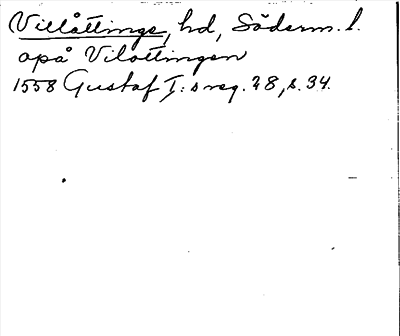 Villåttinge, hd, Söderm. l.
apå Vilottingen
1558 Gustaf I:s reg. 28, s. 34.